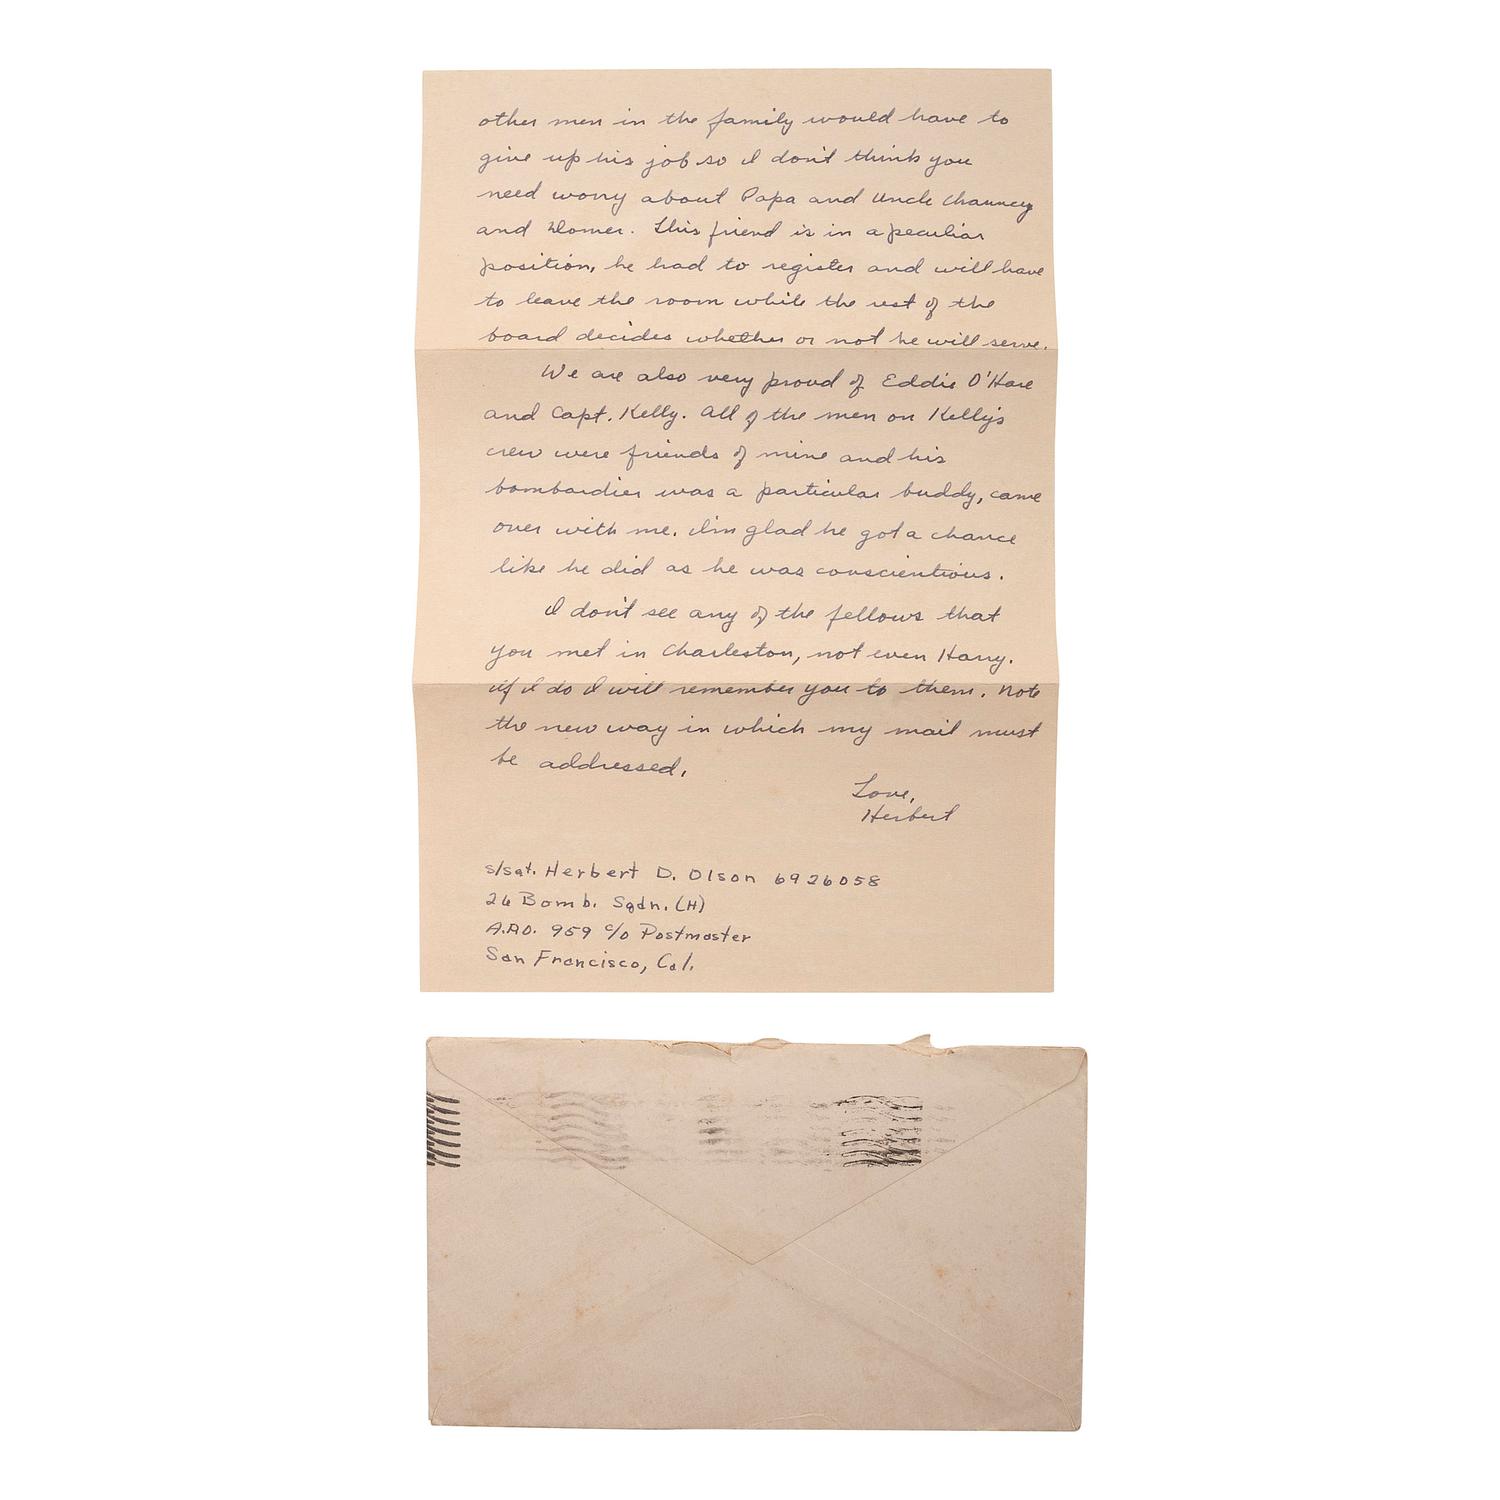 other men in the family would have to
give up his job so I don't think you
need worry about Papa and Uncle Chauncey
and Homer. This friend is in a peculiar
position, he had to register and will have
to leave the room while the rest of the
board decides whether or not he will serve.
We are also very proud of Eddie O'Hare
and Capt. Kelly. All of the men on Kelly's
crew were friends of mine and his
bombardier was a particular buddy, came
over with me. I'm glad he got a chance
like he did as he was conscientious.
I don't see any of the fellows that
you met in Charleston, not even Harry.
If I do I will remember you to them. Note
the new way in which my mail must
be addressed.
Love,
Herbert
S/Sgt. Herbert D. Olson 6926058
26 Bomb. Sqdn. (H)
A.P.O. 959 c/o Postmaster
San Francisco, Cal.